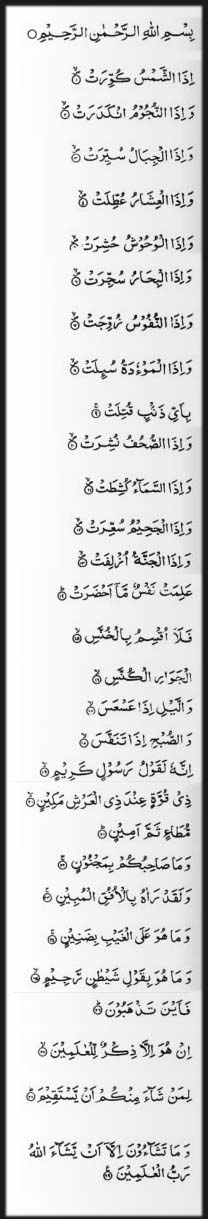 بِسْمِ اللهِ الرَّحْمٰنِ الرَّحِيْمِ ○
اِذَا الشَّمْسُ كُوِّرَتْ ۙ﴿۱﴾
وَ اِذَا النُّجُوْمُ انْكَدَرَتْ ۙ﴿۲﴾
وَ اِذَا الْجِبَالُ سُيِّرَتْ ۙ﴿۳﴾
وَ اِذَا الْعِشَارُ عُطِّلَتْ ۙ﴿۴﴾
وَ اِذَا الْوُحُوْشُ حُشِرَتْ ۙ﴿۵﴾
وَ اِذَا الْبِحَارُ سُجِّرَتْ ۙ﴿۶﴾
وَ اِذَا النُّفُوْسُ زُوِّجَتْ ۙ﴿۷﴾
وَ اِذَا الْمَوْءٗدَةُ سُىِٕلَتْ ۙ﴿۸﴾
بِاَىِّ ذَنْۢبٍ قُتِلَتْ ۚ﴿۹﴾
وَ اِذَا الصُّحُفُ نُشِرَتْ ۙ﴿۱۰﴾
وَ اِذَا السَّمَآءُ كُشِطَتْ ۙ﴿۱۱﴾
وَ اِذَا الْجَحِيْمُ سُعِّرَتْ ۙ﴿۱۲﴾
وَ اِذَا الْجَنَّةُ اُزْلِفَتْ ۙ﴿۱۳﴾
عَلِمَتْ نَفْسٌ مَّاۤ اَحْضَرَتْ ؕ﴿۱۴﴾
فَلَاۤ اُقْسِمُ بِالْخُنَّسِ ۙ﴿۱۵﴾
الْجَوَارِ الْكُنَّسِ ۙ﴿۱۶﴾
وَ الَّيْلِ اِذَا عَسْعَسَ ۙ﴿۱۷﴾
وَ الصُّبْحِ اِذَا تَنَفَّسَ ۙ﴿۱۸﴾
اِنَّهٗ لَقَوْلُ رَسُوْلٍ كَرِيْمٍ ۙ﴿۱۹﴾
ذِيْ قُوَّةٍ عِنْدَ ذِي الْعَرْشِ مَكِيْنٍ ۙ﴿۲۰﴾
مُّطَاعٍ ثَمَّ اَمِيْنٍ ؕ﴿۲۱﴾
وَ مَا صَاحِبُكُمْ بِمَجْنُوْنٍ ۚ﴿۲۲﴾
وَ لَقَدْ رَاٰهُ بِالْاُفُقِ الْمُبِيْنِ ۚ﴿۲۳﴾
وَ مَا هُوَ عَلَى الْغَيْبِ بِضَنِيْنٍ ۚ﴿۲۴﴾
وَ مَا هُوَ بِقَوْلِ شَيْطٰنٍ رَّجِيْمٍ ۙ﴿۲۵﴾
فَاَيْنَ تَذْهَبُوْنَ ؕ﴿۲۶﴾
اِنْ هُوَ اِلَّا ذِكْرٌ لِّلْعٰلَمِيْنَ ۙ﴿۲۷﴾
لِمَنْ شَآءَ مِنْكُمْ اَنْ يَّسْتَقِيْمَ ؕ﴿۲۸﴾
وَ مَا تَشَآءُوْنَ اِلَّاۤ اَنْ يَّشَآءَ اللهُ
رَبُّ الْعٰلَمِيْنَ ﴿۲۹﴾